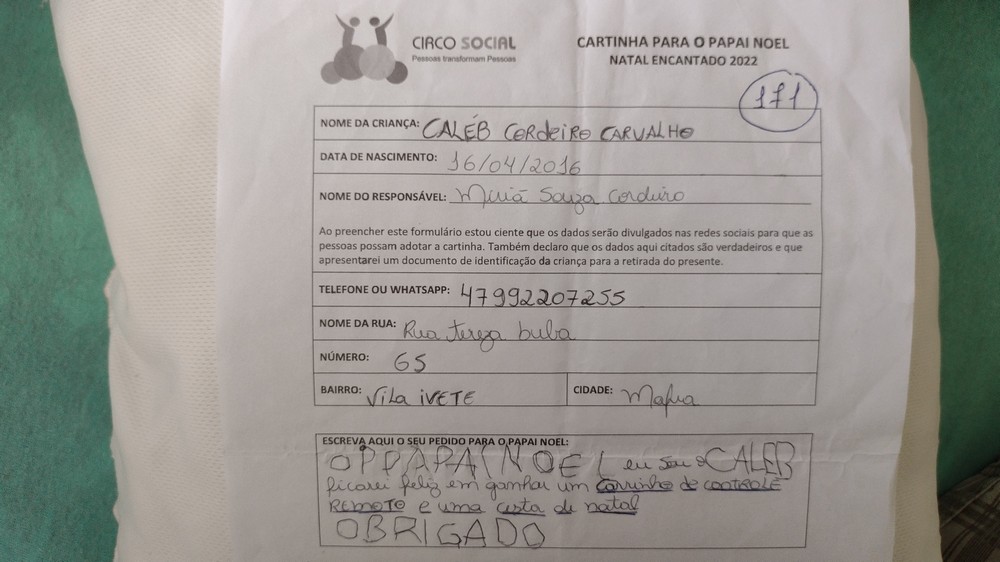 CIRCO SOCIAL
Pessoas transformam Pessoas
CARTINHA PARA O PAPAI NOEL
NATAL ENCANTADO 2022
171
NOME DA CRIANÇA: CALÉB CORDEIRO CARVALHO
DATA DE NASCIMENTO: 16/04/2016
NOME DO RESPONSÁVEL: Souza Cordeiro
Ao preencher este formulário estou ciente que os dados serão divulgados nas redes sociais para que as
pessoas possam adotar a cartinha. Também declaro que os dados aqui citados são verdadeiros e que
apresentarei um documento de identificação da criança para a retirada do presente.
TELEFONE OU WHATSAPP: 47992207255
NOME DA RUA: Rua tereza buba
NÚMERO: 65
BAIRRO: Vila iVETE
CIDADE: Mafra
ESCREVA AQUI O SEU PEDIDO PARA O PAPAI NOEL:
PAPAI NOEL eu sou o CALEB
ficarei feliz em ganhar um carrinho de CONTROLE
REMOTO e uma cesta de natal
OBRIGADO